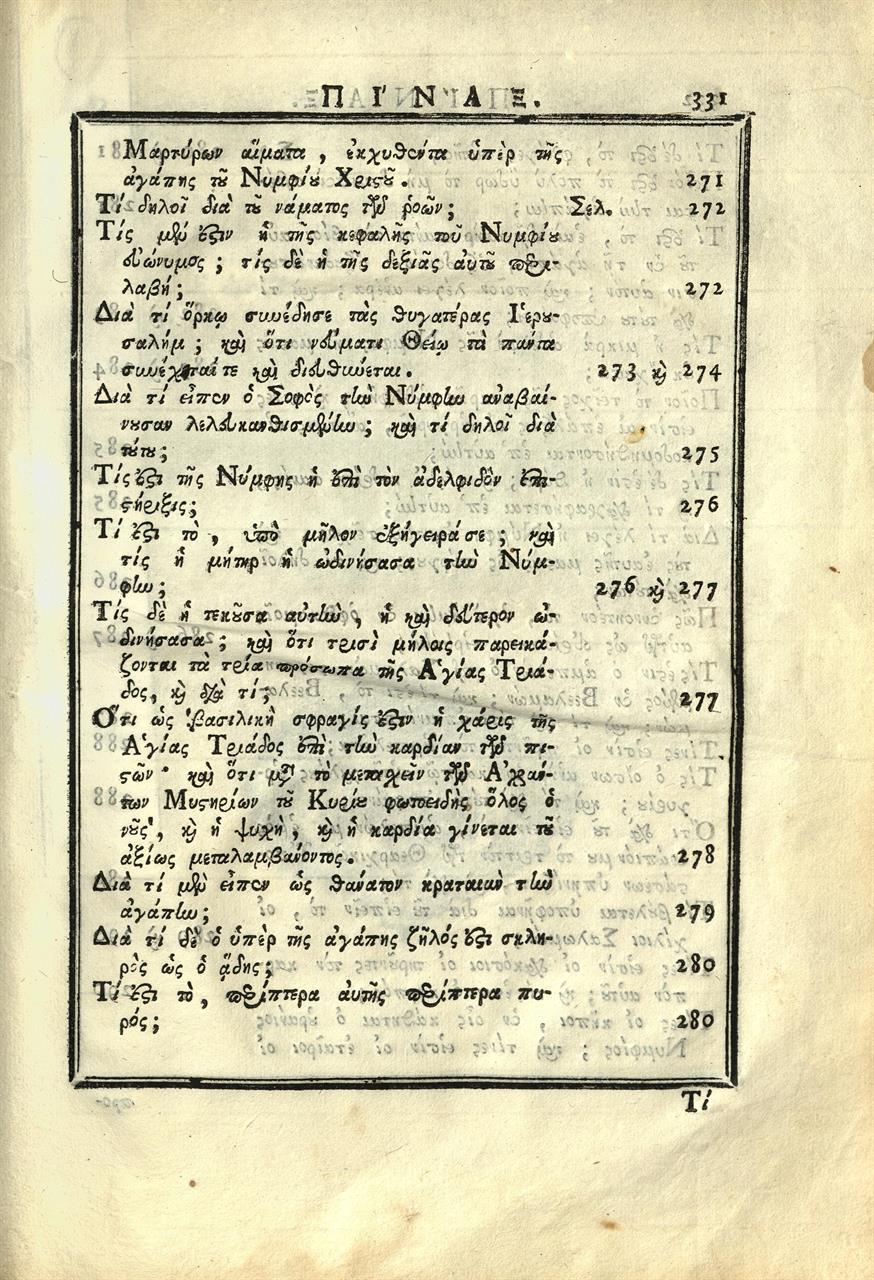 ΠΙ΄ΝΑΞ. 331
Μαρτύρων αἵματα, ἐκχυθέντα ὑπὲρ τῆς
ἀγάπης τοῦ Νυμφίου Χριστοῦ. 271
Τί δηλοῖ διὰ τοῦ νάματος τῶν ῥοῶν; Σελ. 272
Τίς μὲν ἐστὶν ἡ τῆς κεφαλῆς τοῦ Νυμφίου
εὐώνυμος; τίς δὲ ἡ τῆς δεξιᾶς αὐτοῦ περι-
λαβή; 272
Διὰ τί ὅρκῳ συνέδησε τὰς θυγατέρας Ἱερου-
σαλήμ; καὶ ὅτι νεύματι Θείῳ τὰ πάντα
συνέχεταί τε καὶ διευθύνεται. 273 καὶ 274
Διὰ τί εἶπεν ὁ Σοφὸς τὴν Νύμφην ἀναβαί-
νουσαν λελευκανθισμένην; καὶ τί δηλοῖ διὰ
τούτου; 275
Τίς ἐστι τῆς Νύμφης ἡ ἐπὶ τὸν ἀδελφιδὸν ἐπι-
στήριξις; 276
Τί ἐστι τὸ, ὑπὸ μῆλον ἐξήγειρά σε; καὶ
τίς ἡ μήτηρ ἡ ὠδινήσασα τὴν Νύμ-
φην; 276 καὶ 277
Τίς δὲ ἡ τεκοῦσα αὐτὴν, ἡ καὶ δεύτερον ὠ-
δινήσασα; καὶ ὅτι τρισὶ μήλοις παρεικά-
ζονται τὰ τρία πρόσωπα τῆς Ἁγίας Τριά-
δος, καὶ διὰ τί; 277
Ὅτι ὡς βασιλικὴ σφραγίς ἐστιν ἡ χάρις τῆς
Ἁγίας Τριάδος ἐπὶ τὴν καρδίαν τῶν πι-
στῶν· καὶ ὅτι μετὰ τὸ μετασχεῖν τῶν Ἀχράν-
των Μυστηρίων τοῦ Κυρίου φωτοειδὴς ὅλος ὁ
νοῦς, καὶ ἡ ψυχὴ, καὶ ἡ καρδία γίνεται τοῦ
ἀξίως μεταλαμβάνοντος. 278
Διὰ τί μὲν εἶπεν ὡς θάνατον κραταιὰν τὴν
ἀγάπην; 279
Διὰ τί δὲ ὁ ὑπὲρ τῆς ἀγάπης ζῆλός ἐστι σκλη-
ρὸς ὡς ὁ ᾅδης; 280
Τί ἐστι τὸ, περίπτερα αὐτῆς περίπτερα πυ-
ρός; 280
Τί